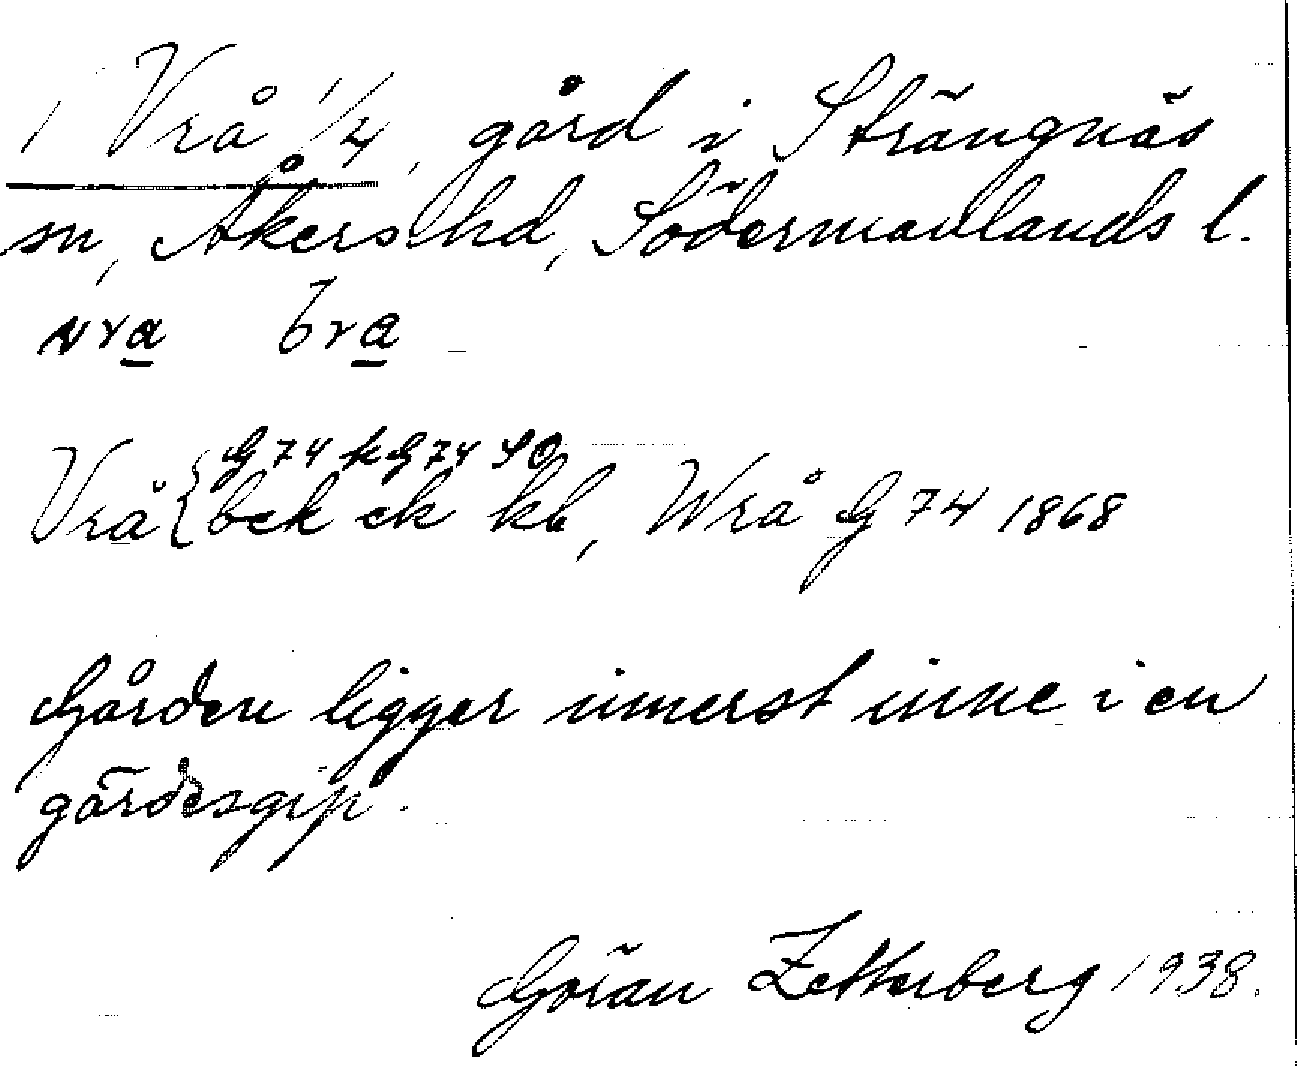 1 Vrå 1/4, gård i Strängnäs
sn, Åkers hd, Södermanlands l.
vra bra
G 74 k G 74 SO
Vrå { bek ek kb, Wrå G 74 1868
Gården ligger innerst inne i en
gärdesgip.
Göran Zetterberg 1938.